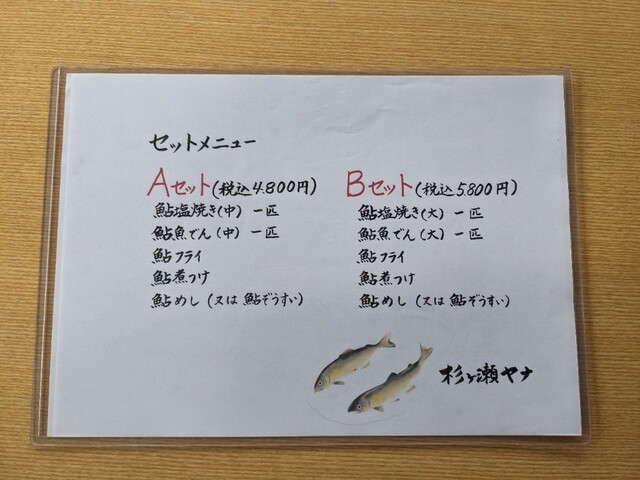 セットメニュー
Aセット(税込4.800円)
鮎塩焼き(中) 一匹
鮎魚でん(中) 一匹
鮎フライ
鮎煮つけ
鮎めし (又は 鮎ぞうすい)
Bセット(税込5800円)
鮎塩焼き(大) 一匹
鮎魚でん(大) 一匹
鮎フライ
鮎煮つけ
鮎めし (又は 鮎ぞうすい)
杉ヶ瀬ヤナ